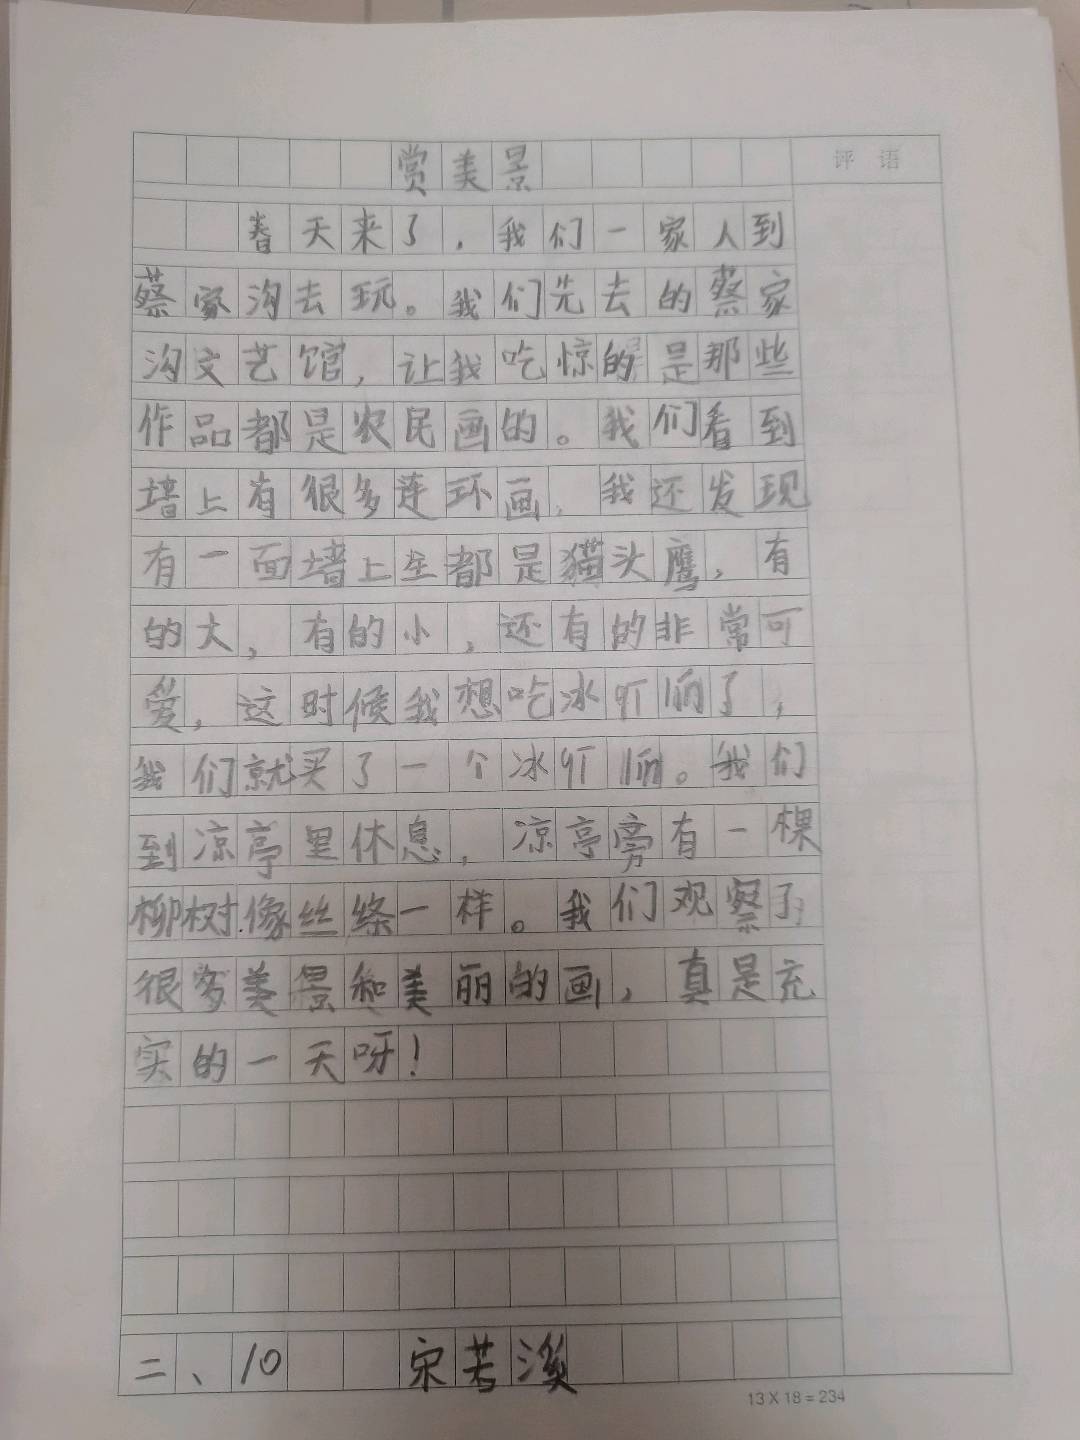 赏美景
评语
春天来了，我们一家人到
蔡家沟去玩。我们先去的蔡家
沟文艺馆，让我吃惊的是那些
作品都是农民画的。我们看到
墙上有很多连环画，我还发现
有一面墙上全都是猫头鹰，有
的大，有的小，还有的非常可
爱，这时候我想吃冰了，
我们就买了一个冰。我们
到凉亭里休息，凉亭旁有一棵
柳树.像丝绦一样。我们观察了
很多美景和美丽的画，真是充
实的一天呀！
二、10 宋若溪
13 X 18 = 234